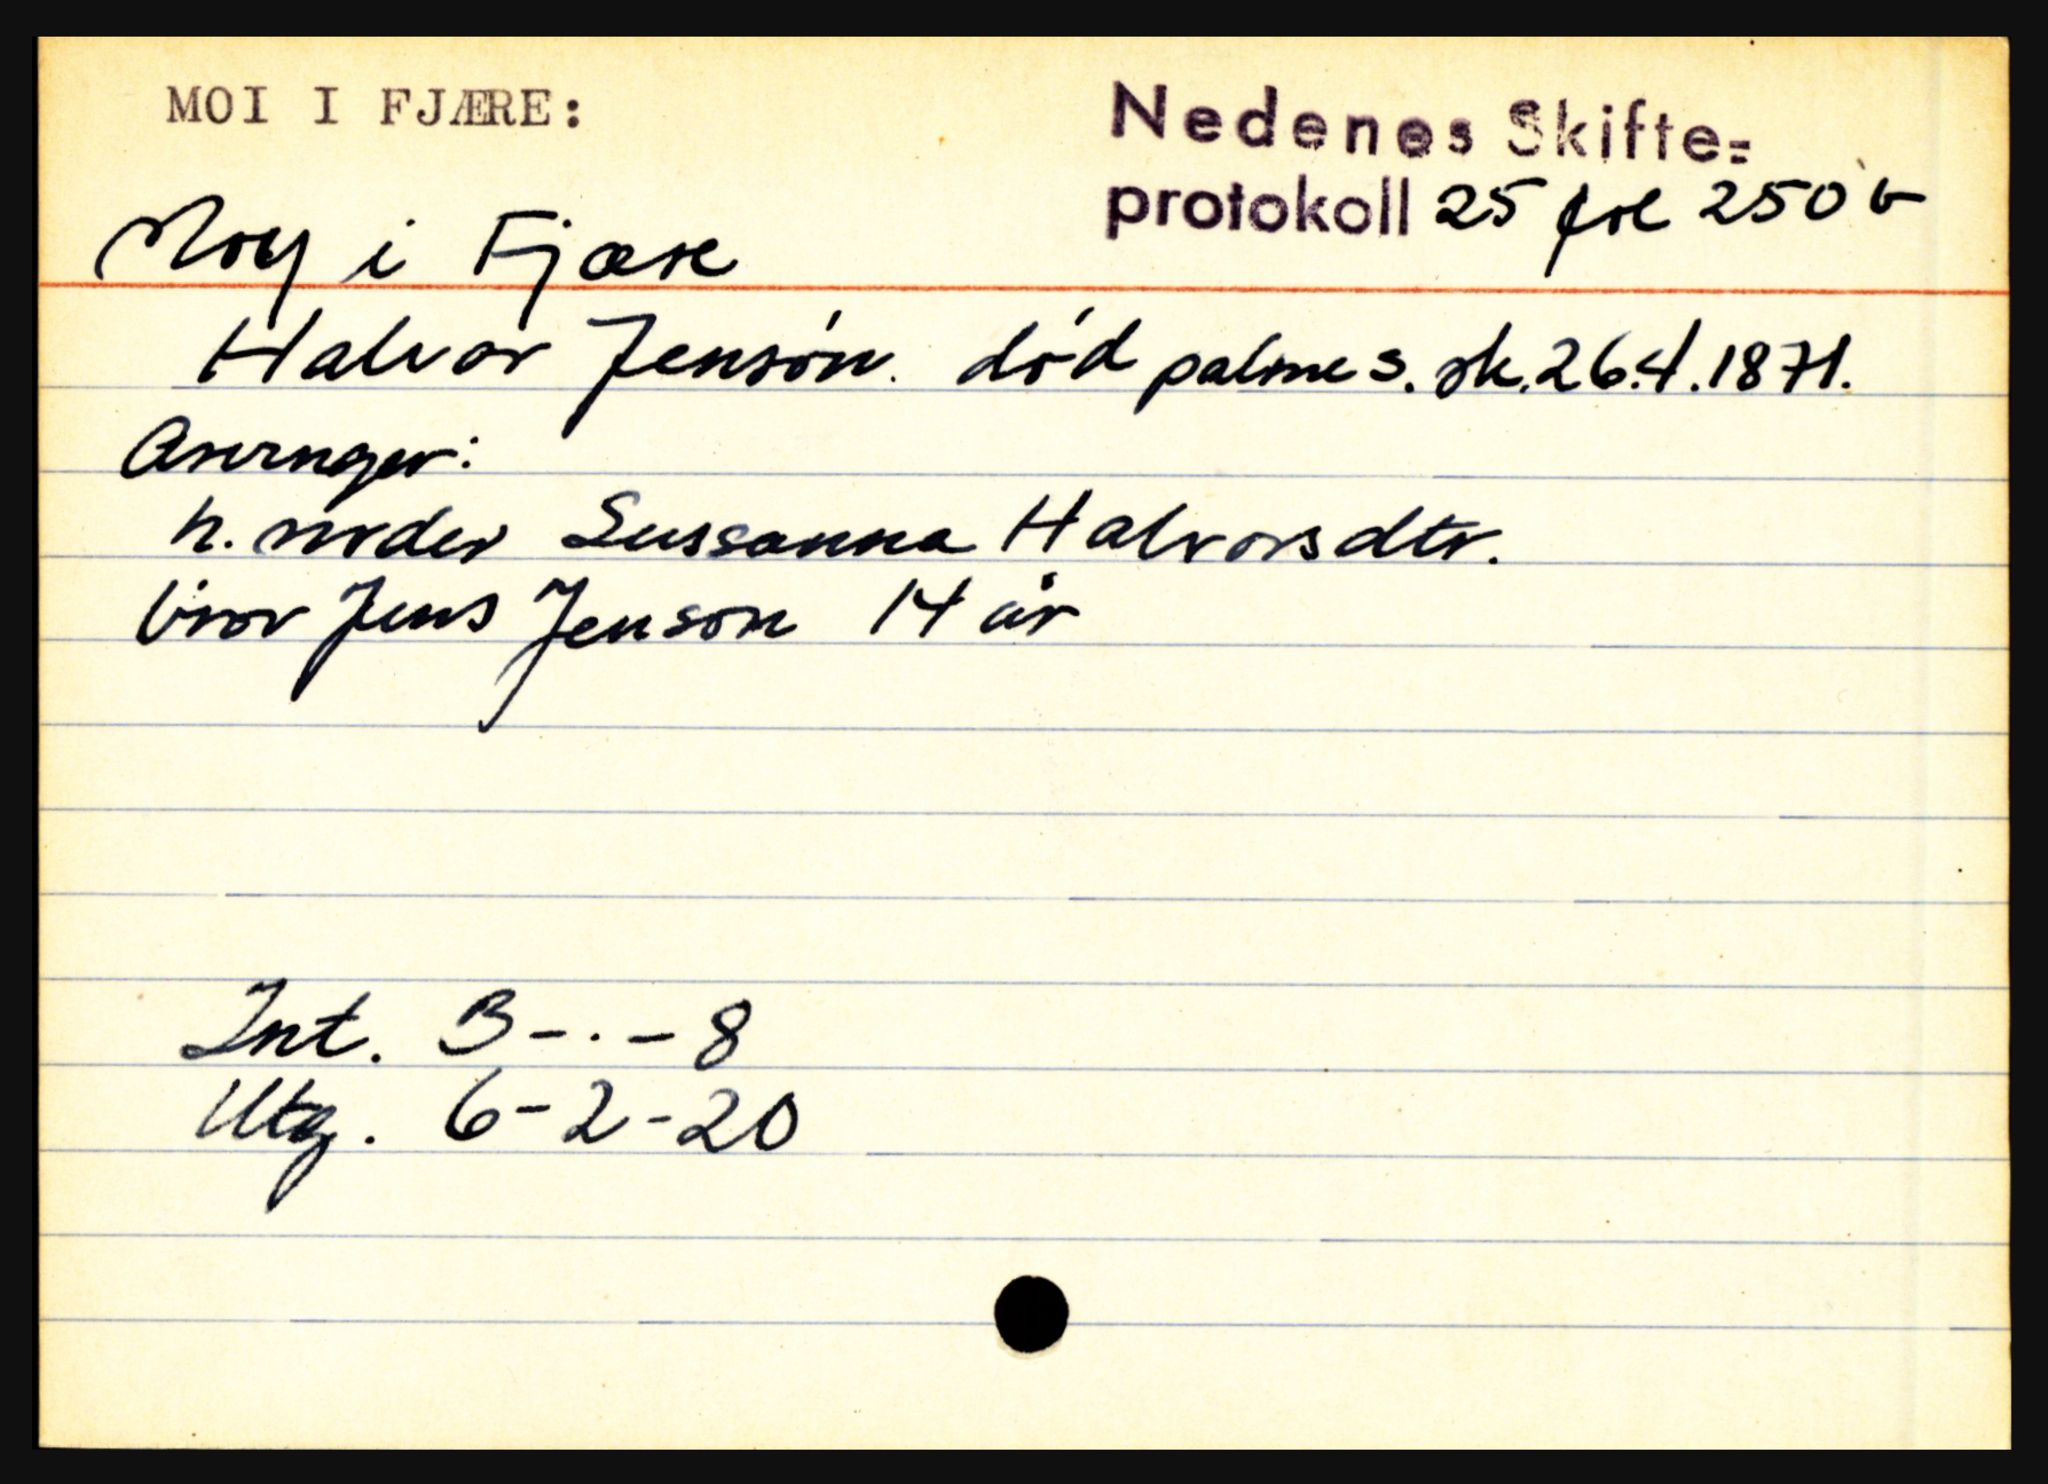 MOI I FJÆRE:
Nedenes Skifte=
protokoll 25 fol 250 b
Moy i Fjære
Halvor Jensøn. død palmes. sk. 26.4.1871.
Arvinger:
h. moder Sussanna Halvorsdtr.
bror Jens Jenson 14 år
Int. 3 - . - 8
Utg. 6 - 2 - 20